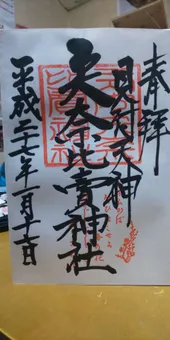 奉拝
見付天神
矢奈比賣神社
平成二七年一月十二日